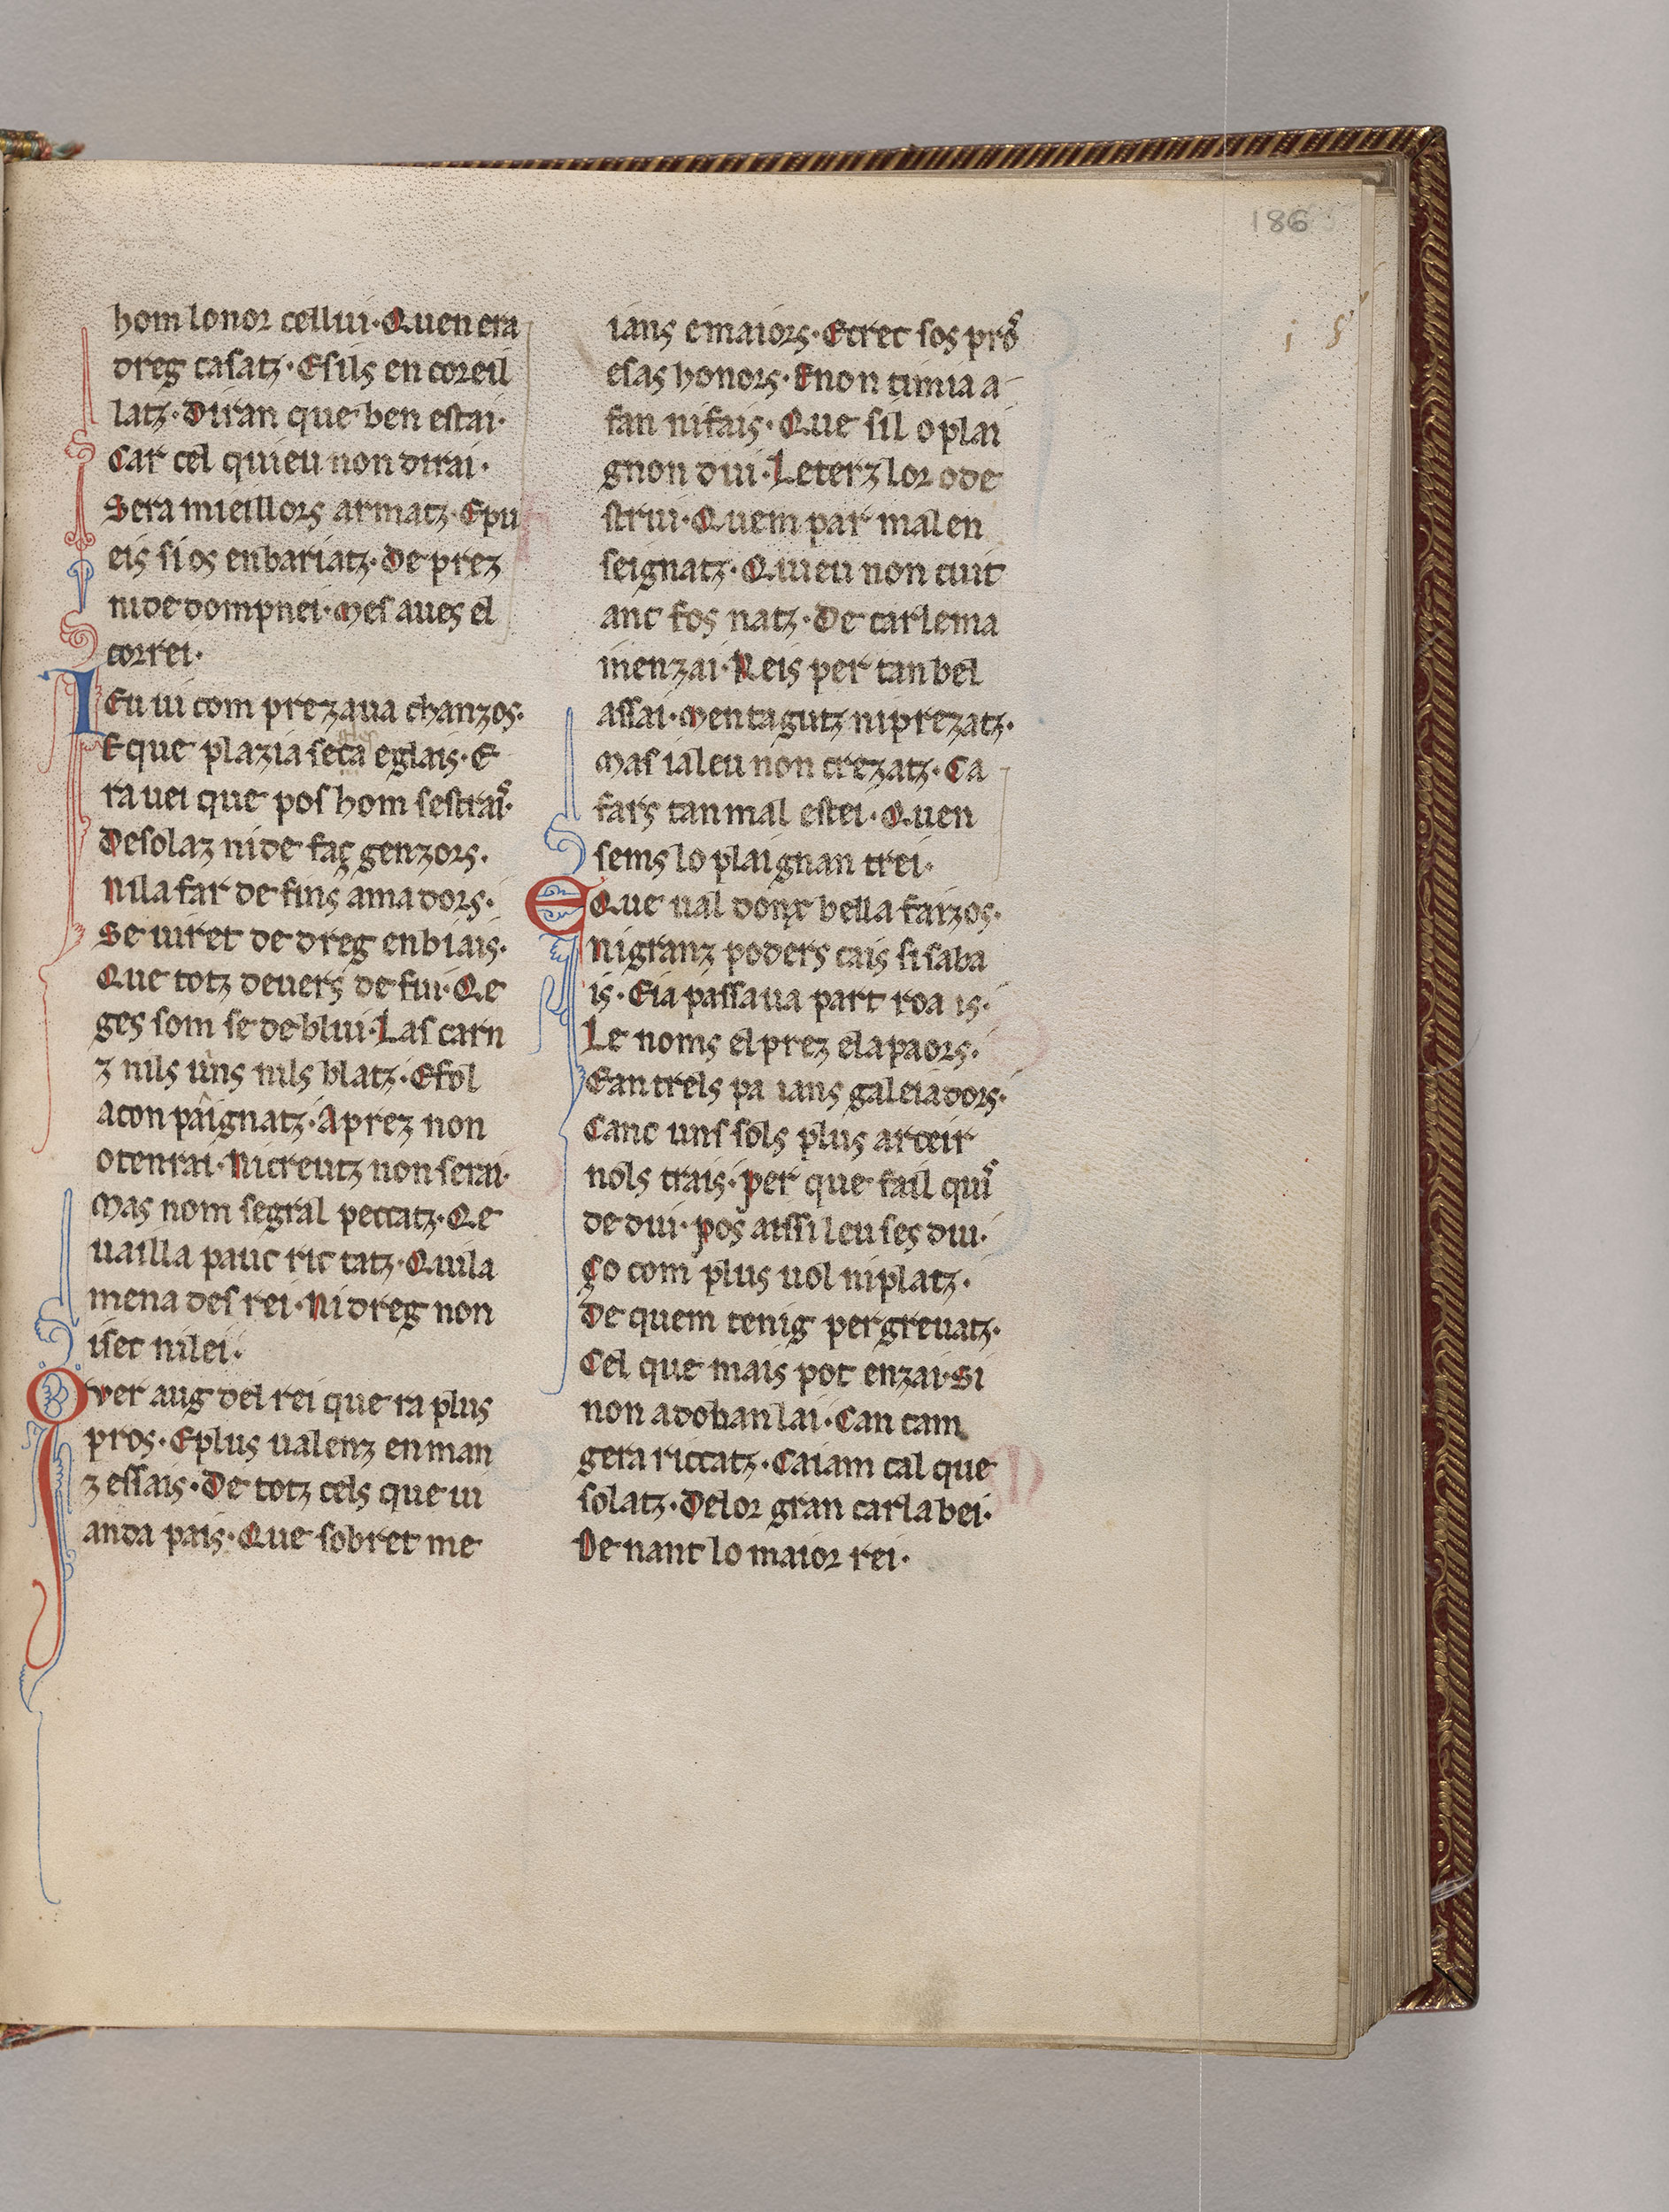 186
hom lonor cellui· Quen era
dreg casatz· E sils en coreil
latz· Diran que ben estai·
Car cel quieu non dirai·
Sera mieillors armatz· Epu
eis si os enbariatz· De prez
ni de dompnei· Mes aues el
correi·
Ieu ui com prezaua chanzos·
E que plazia seca eglais· E
ra uei que pos hom sestrais·
De solaz ni de faç genzors·
Ni la far de fins amadors·
Se uiret de dreg enbiais·
Que totz deuers de fui· Qe
ges som se deblui· Las carn
z nils uins nils blatz· E fol
acon paignatz· A prez non
otenrai· Ni creutz non serai·
Mas nom segral peccatz· Qe
uailla pauc ric tatz· Quila
mena des rei· Ni dreg non
iset nilei·
Over aug del rei que ra plus
pros· E plus ualenz en man
z essais· De totz cels que ui
anda pais· Que sobret me
ians e maiors· E cret sos pros
e sas honors· E non timia a
fan nifais· Que sil o plai
gnon dui· Leterz lor o de
strui· Quem par mal en
seignatz· Quieu non cuit
anc fos natz· De carlema
inenzai· Reis per tan bel
assai· Mentagutz ni prezatz·
Mas ialeu non crezatz· Ca
fars tan mal estei· Quen
sems lo plaignan trei·
E Que ual donx bella faizos·
ni granz poders cais si saba
is· E ia passaua part roa is·
Le noms el prez e la paors·
E an trels pa ians galeiadors·
Canc uns sols plus arteir
nols trais· Per que fail qui
de dui· Pos aissi leu ses dui·
Ço com plus uol ni platz·
De quem tenig per greuatz·
Cel que mais pot enzai· Si
non adoban lai· Can cam
gera riccatz· Caiam cal que
solatz· De lor gran carlabei·
De nant lo maior rei·